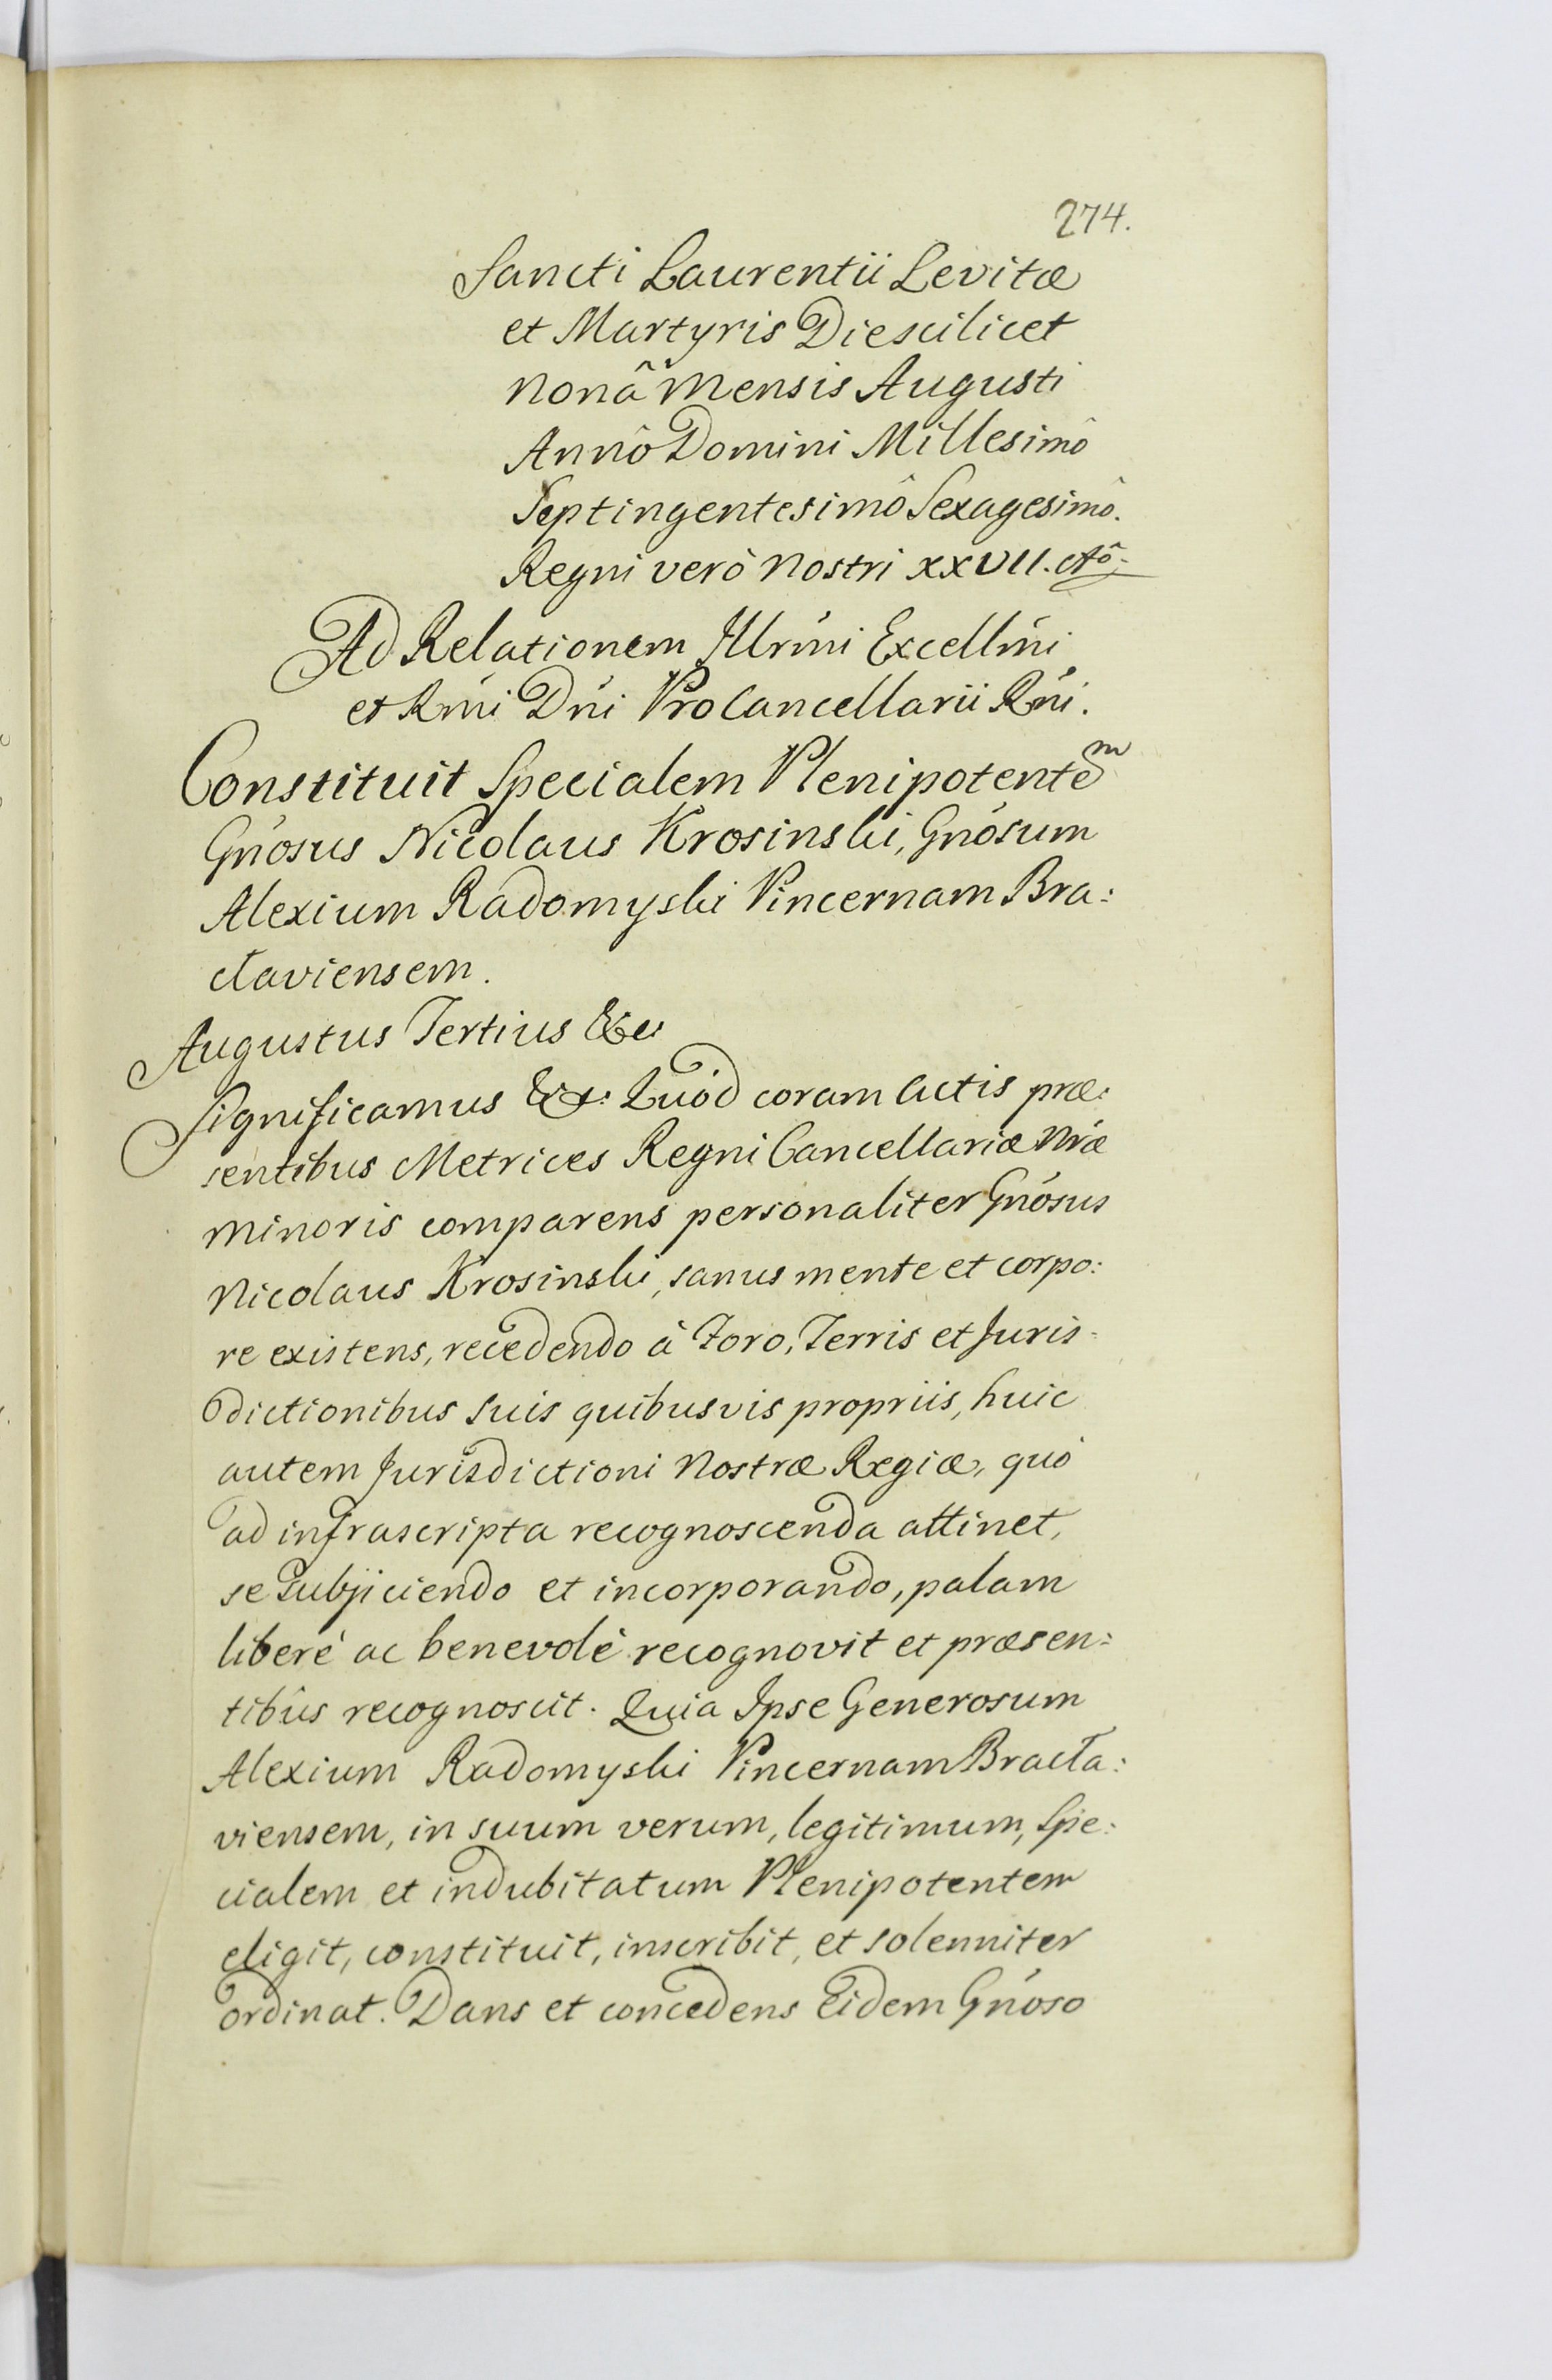 274.
Sancti Laurentii Levitæ
et Martyris Die scilicet
nonâ Mensis Augusti
Annô Domini Millesimô
Septingentesimô Sexagesimô.
Regni verò Nostri XXVII. Aô.
Ad Relationem Illrmi Excellmi
et Rmi Dni ProCancellarii Rni.
Constituit Specialem Plenipotentem
Gnosus Nicolaus Krosinski, Gnosum
Alexium Radomyski Pincernam Bra:
claviensem.
Augustus Tertius &c.
Significamus &c: Quòd coram Actis præ:
sentibus Metrices Regni Cancellariæ Nræ
Minoris comparens personaliter Gnosus
Nicolaus Krosinski, sanus mente et corpo:
re existens, recedendo à Foro, Terris et Juris=
dictionibus suis quibusvis propriis, huic
autem Jurisdictioni Nostræ Regiæ, quò
ad infrascripta recognoscenda attinet,
se subjiciendo et incorporando, palam
liberè ac benevolè recognovit et præsen:
tibûs recognoscit. Quia Ipse Generosum
Alexium Radomyski Pincernam Bracla:
viensem, in suum verum, legitimum, Spe:
cialem et indubitatum Plenipotentem
eligit, constituit, inscribit, et solenniter
ordinat. Dans et concedens Eidem Gnoso